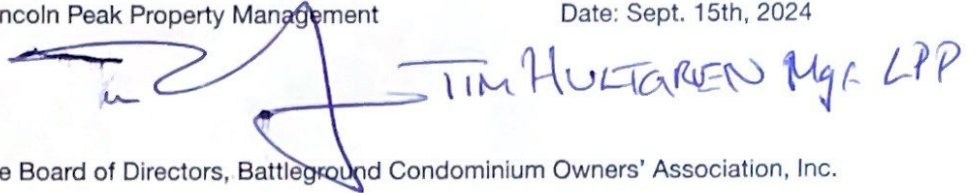 ncoln Peak Property Management Date: Sept. 15th, 2024
TIM HULTGREN Mgr LPP
e Board of Directors, Battleground Condominium Owners' Association, Inc.